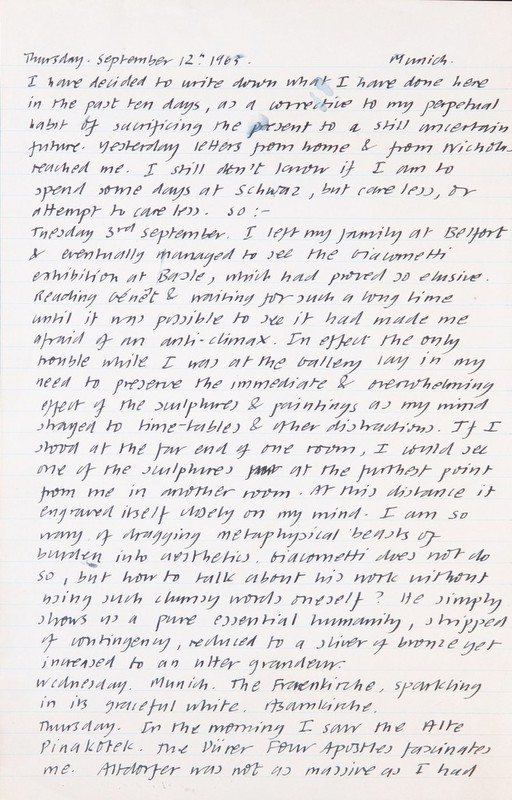 Thursday. September 12th 1963. Munich.
I have decided to write down what I have done here
in the past ten days, as a corrective to my perpetual
habit of sacrificing the present to a still uncertain
future. Yesterday letters from home & from Nichols
reached me. I still don't know if I am to
spend some days at Schwaz, but care less, or
attempt to care less. So :-
Tuesday 3rd September. I left my family at Belfort
& eventually managed to see the Giacometti
exhibition at Basle, which had proved so elusive.
Reading Genêt & waiting for such a long time
until it was possible to see it had made me
afraid of an anti-climax. In effect the only
trouble while I was at the Gallery lay in my
need to preserve the immediate & overwhelming
effect of the sculptures & paintings as my mind
strayed to time-tables & other distractions. If I
stood at the far end of one room, I could see
one of the sculptures at the furthest point
from me in another room. At this distance it
engraved itself closely on my mind. I am so
wary of dragging metaphysical beasts of
burden into aesthetics. Giacometti does not do
so, but how to talk about his work without
using such clumsy words oneself? He simply
shows us a pure essential humanity, stripped
of contingency, reduced to a sliver of bronze yet
increased to an utter grandeur.
Wednesday. Munich. The Frauenkirche, sparkling
in its graceful white. Asamkirche.
Thursday. In the morning I saw the Alte
Pinakotek. The Dürer Four Apostles fascinates
me. Altdorfer was not as massive as I had